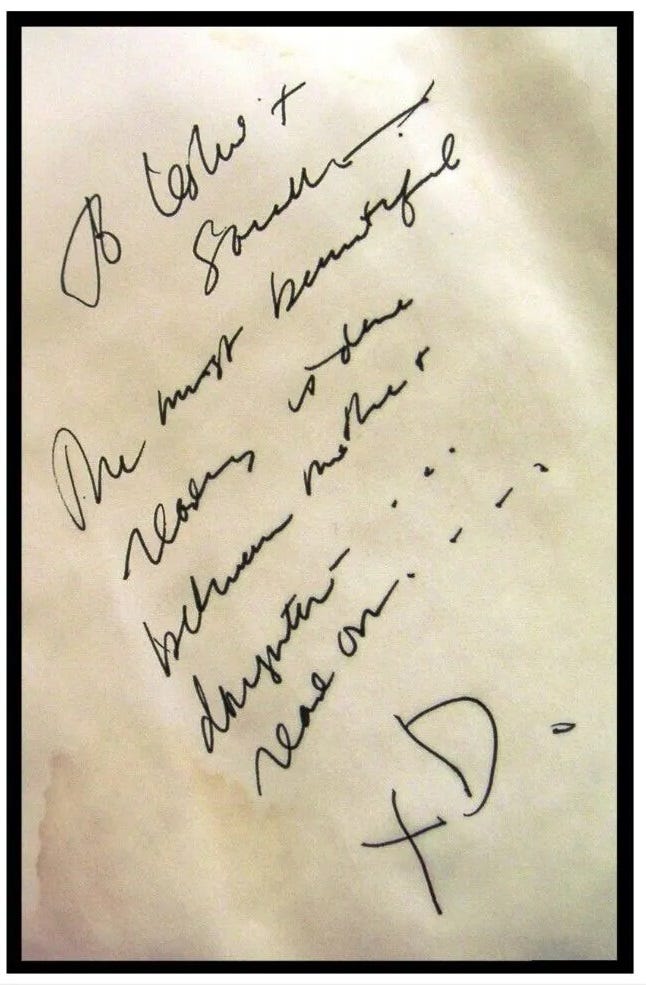 To Leslie +
Sarah
The most beautiful
reading is done
between mother +
daughter - . . .
read on. - - .
x D.